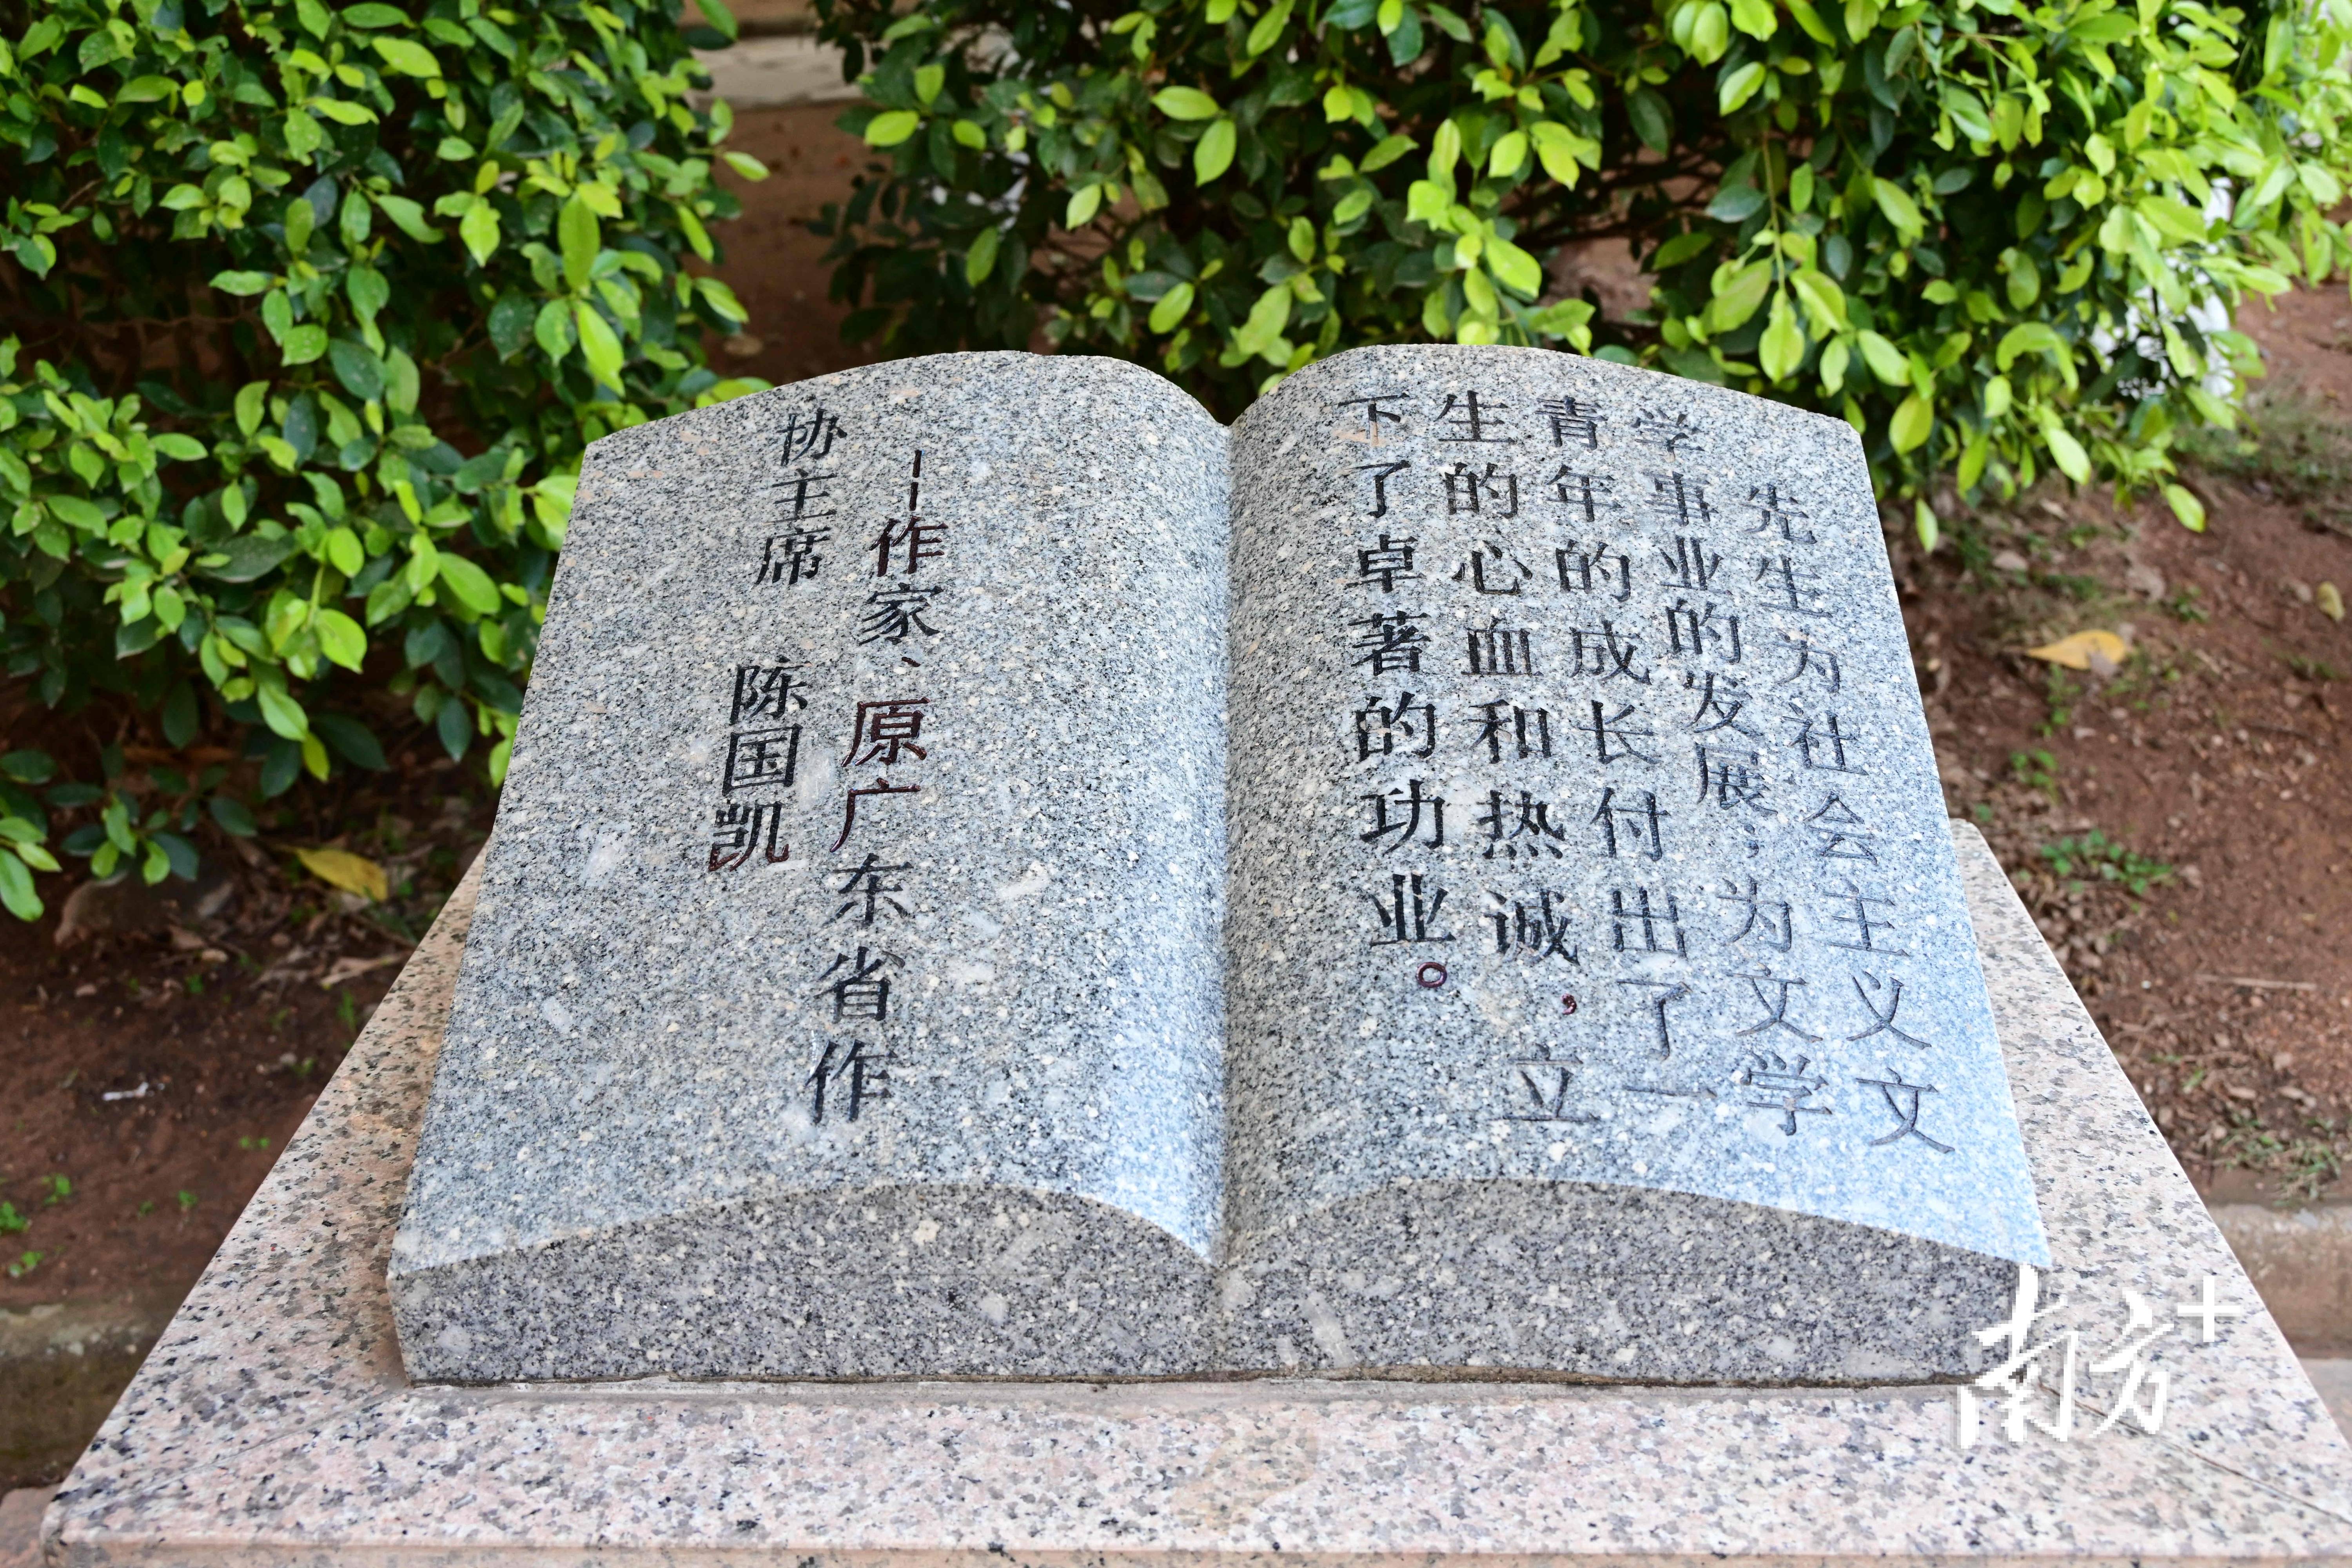 先生为社会主义文
学事业的发展，为文学
青年的成长付出了一
生的心血和热诚，立
下了卓著的功业。
——作家、原广东省作
协主席 陈国凯
南方+